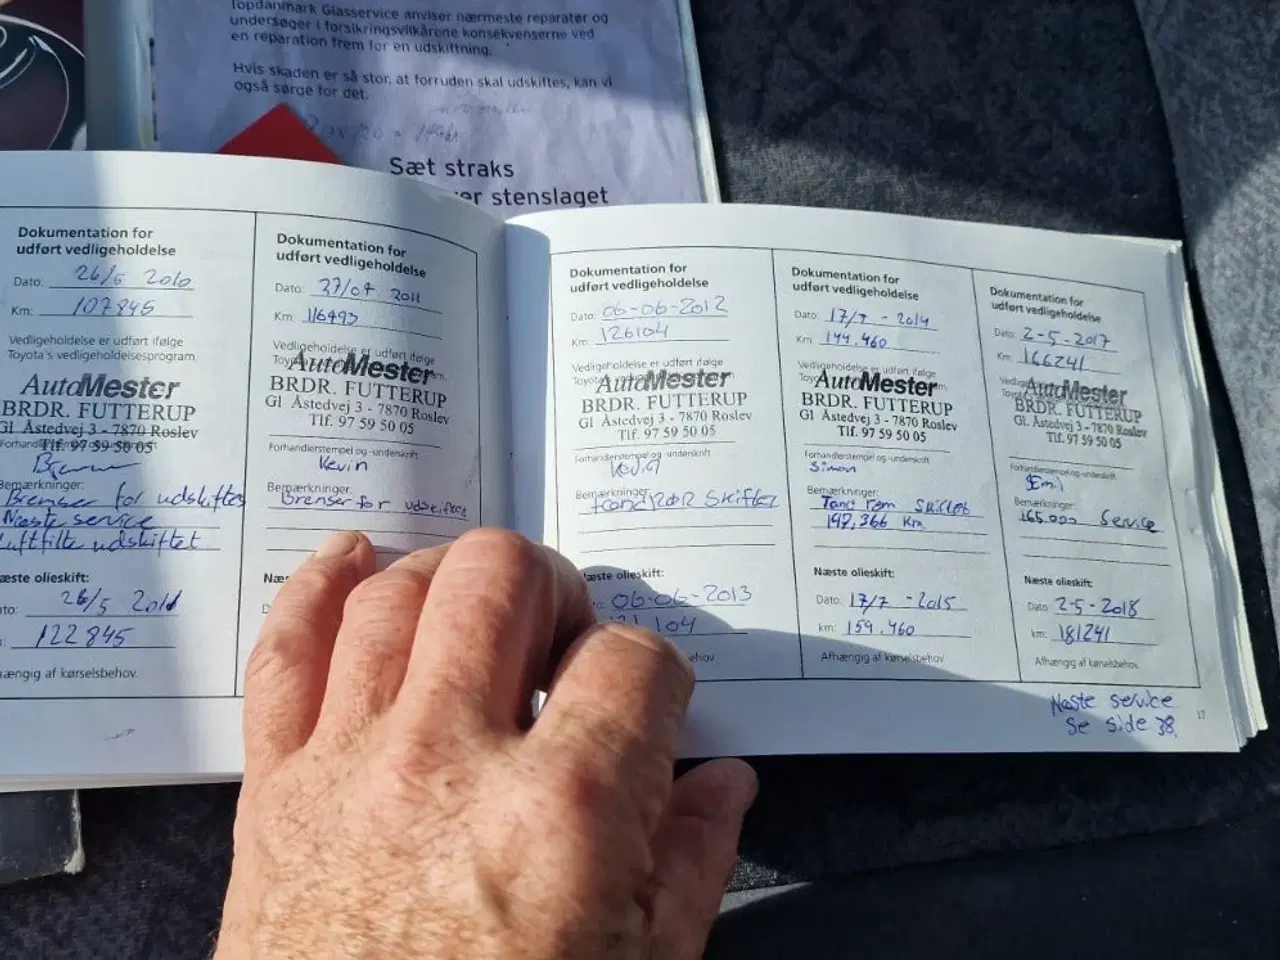 Topdanmark Glasservice anviser nærmeste reparatør og
undersøger i forsikringsvilkårene konsekvenserne ved
en reparation frem for en udskiftning.
Hvis skaden er så stor, at forruden skal udskiftes, kan vi
også sørge for det.
Sæt straks
stenslaget
Dokumentation for
udført vedligeholdelse
Dato: 26/5 2010
Km: 107845
Vedligeholdelse er udført ifølge
Toyota's vedligeholdelsesprogram
AutoMester
BRDR. FUTTERUP
Gl Åstedvej 3 - 7870 Roslev
Tlf. 97 59 50 05
Bemærkninger:
Bremser for udskiftet
Næste service
Luftfilte udskiftet
Næste olieskift:
26/5 2011
122845
Afhængig af kørselsbehov.
Dokumentation for
udført vedligeholdelse
Dato: 27/07 2011
Km: 116493
Vedligeholdelse er udført ifølge
AutoMester
BRDR. FUTTERUP
Gl Åstedvej 3 - 7870 Roslev
Tlf. 97 59 50 05
Forhandlerstempel og -underskrift
Kevin
Bemærkninger:
Bremser for udskiftet
Dokumentation for
udført vedligeholdelse
Dato: 06-06-2012
Km: 126104
Vedligeholdelse er udført ifølge
AutoMester
BRDR. FUTTERUP
Gl Åstedvej 3 - 7870 Roslev
Tlf. 97 59 50 05
Forhandlerstempel og -underskrift
Bemærkninger:
Næste olieskift:
06-06-2013
104
Dokumentation for
udført vedligeholdelse
Dato: 17/7 - 2014
Km: 144.460
Vedligeholdelse er udført ifølge
AutoMester
BRDR. FUTTERUP
Gl Åstedvej 3 - 7870 Roslev
Tlf. 97 59 50 05
Forhandlerstempel og -underskrift
Simon
Bemærkninger:
Tand rem Skiftet
142,366 Km
Næste olieskift:
Dato: 17/7 - 2015
km: 159.460
Afhængig af kørselsbehov
Dokumentation for
udført vedligeholdelse
Dato: 2-5-2017
Km: 166241
AutoMester
BRDR. FUTTERUP
Gl Åstedvej 3 - 7870 Roslev
Tlf. 97 59 50 05
Forhandlerstempel og -underskrift
Emil
Bemærkninger:
165.000 Service
Næste olieskift:
Dato: 2-5-2018
km: 181241
Afhængig af kørselsbehov.
Næste service
Se side 38.
17